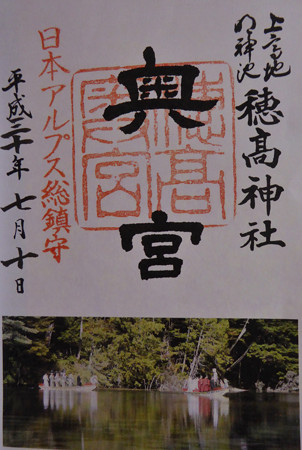 上高地
明神池
穂高神社
奥宮
穂高奥宮
日本アルプス総鎮守
平成二十年 七月十日